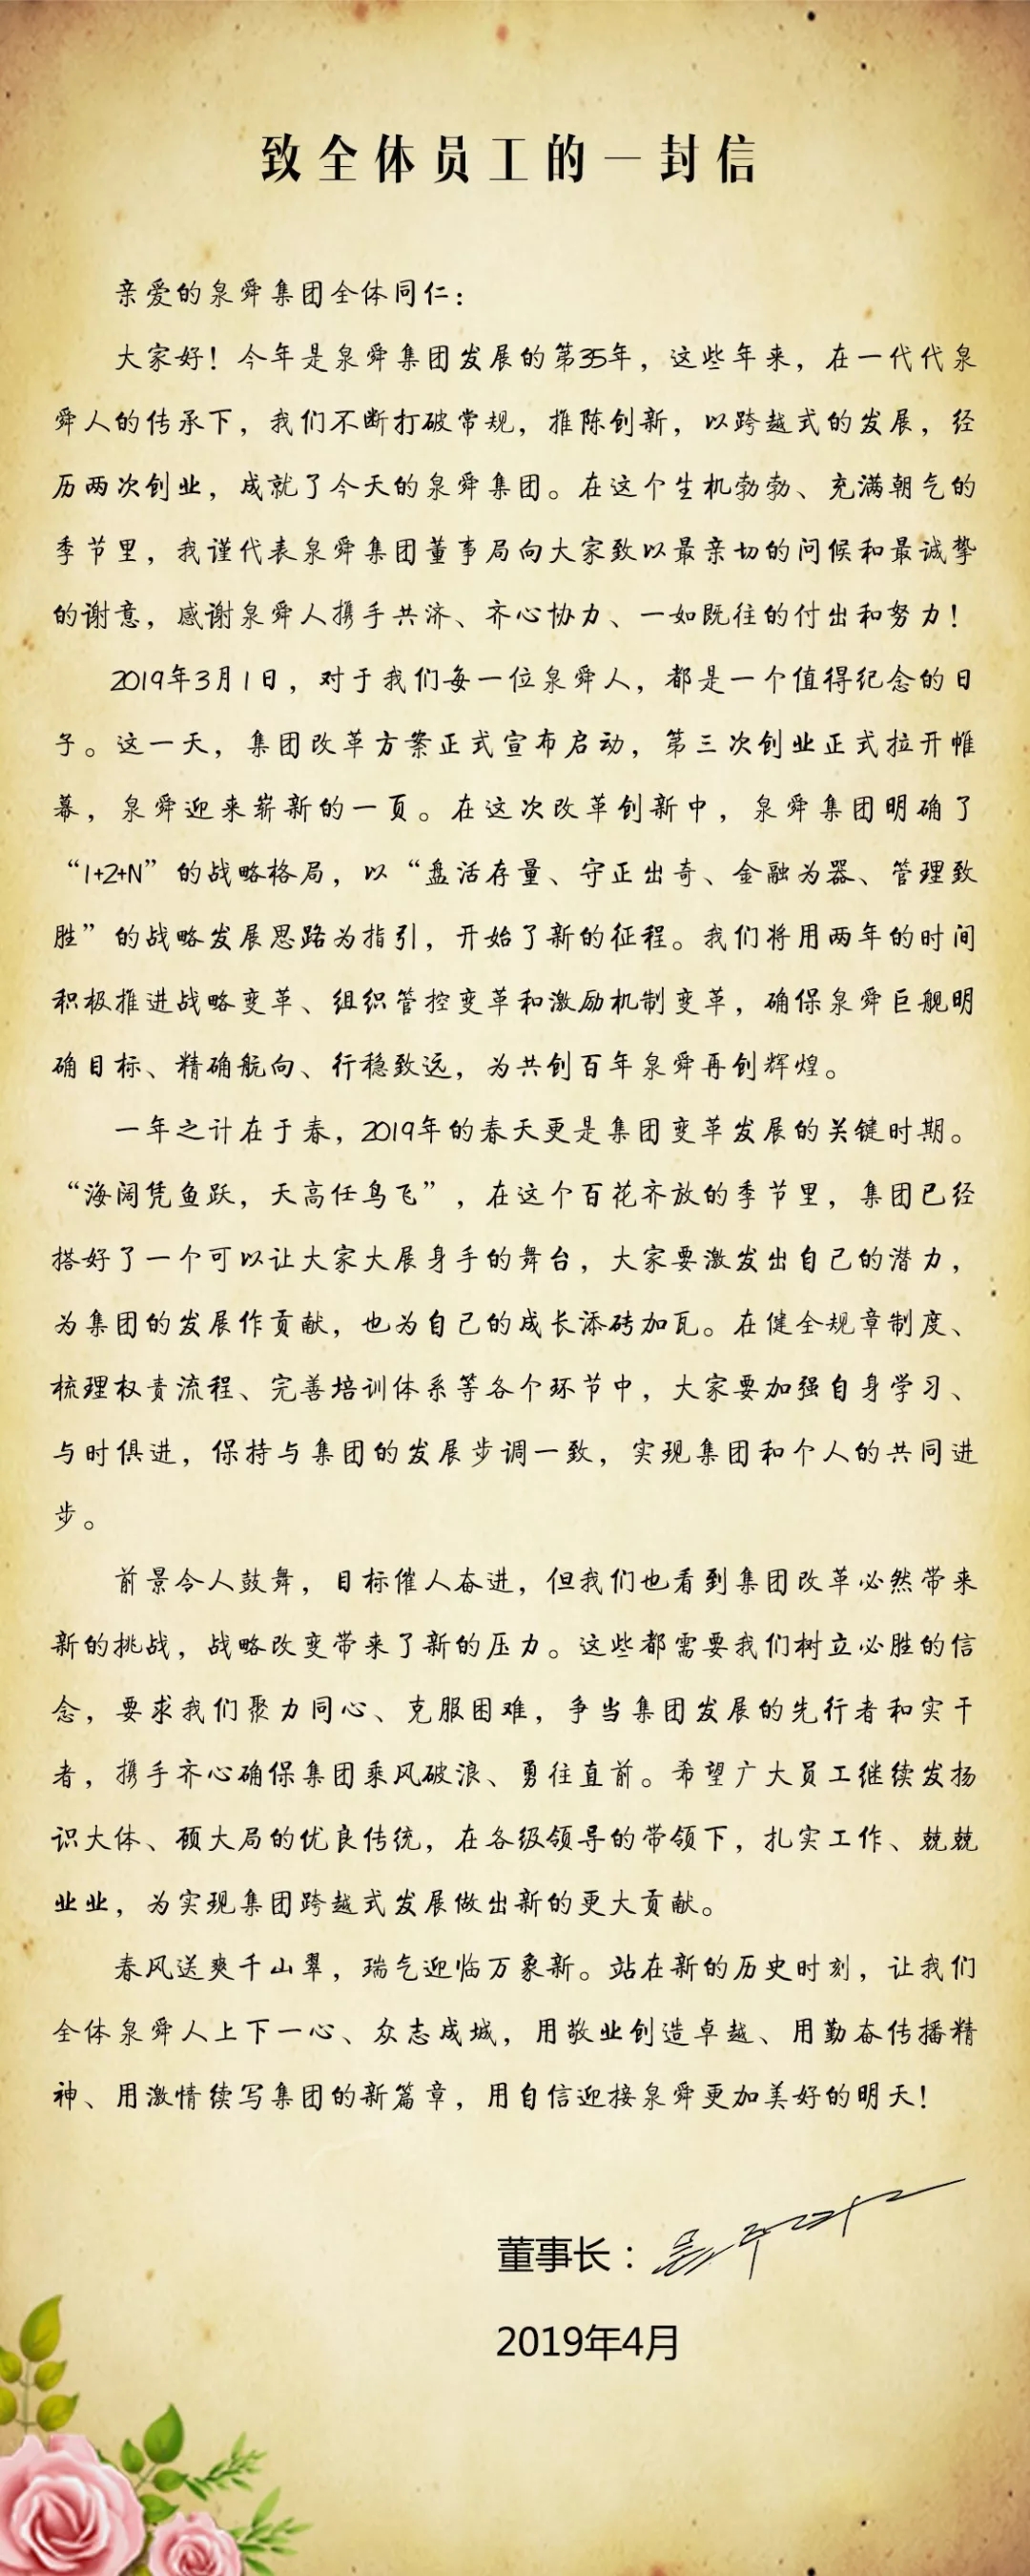 致全体员工的一封信
亲爱的泉舜集团全体同仁：
大家好！今年是泉舜集团发展的第35年，这些年来，在一代代泉
舜人的传承下，我们不断打破常规，推陈创新，以跨越式的发展，经
历两次创业，成就了今天的泉舜集团。在这个生机勃勃、充满朝气的
季节里，我谨代表泉舜集团董事局向大家致以最亲切的问候和最诚挚
的谢意，感谢泉舜人携手共济、齐心协力、一如既往的付出和努力！
2019年3月1日，对于我们每一位泉舜人，都是一个值得纪念的日
子。这一天，集团改革方案正式宣布启动，第三次创业正式拉开帷
幕，泉舜迎来崭新的一页。在这次改革创新中，泉舜集团明确了
“1+2+N”的战略格局，以“盘活存量、守正出奇、金融为器、管理致
胜”的战略发展思路为指引，开始了新的征程。我们将用两年的时间
积极推进战略变革、组织管控变革和激励机制变革，确保泉舜巨舰明
确目标、精确航向、行稳致远，为共创百年泉舜再创辉煌。
一年之计在于春，2019年的春天更是集团变革发展的关键时期。
“海阔凭鱼跃，天高任鸟飞”，在这个百花齐放的季节里，集团已经
搭好了一个可以让大家大展身手的舞台，大家要激发出自己的潜力，
为集团的发展作贡献，也为自己的成长添砖加瓦。在健全规章制度、
梳理权责流程、完善培训体系等各个环节中，大家要加强自身学习、
与时俱进，保持与集团的发展步调一致，实现集团和个人的共同进
步。
前景令人鼓舞，目标催人奋进，但我们也看到集团改革必然带来
新的挑战，战略改变带来了新的压力。这些都需要我们树立必胜的信
念，要求我们聚力同心、克服困难，争当集团发展的先行者和实干
者，携手齐心确保集团乘风破浪、勇往直前。希望广大员工继续发扬
识大体、顾大局的优良传统，在各级领导的带领下，扎实工作、兢兢
业业，为实现集团跨越式发展做出新的更大贡献。
春风送爽千山翠，瑞气迎临万象新。站在新的历史时刻，让我们
全体泉舜人上下一心、众志成城，用敬业创造卓越、用勤奋传播精
神、用激情续写集团的新篇章，用自信迎接泉舜更加美好的明天！
董事长：
2019年4月